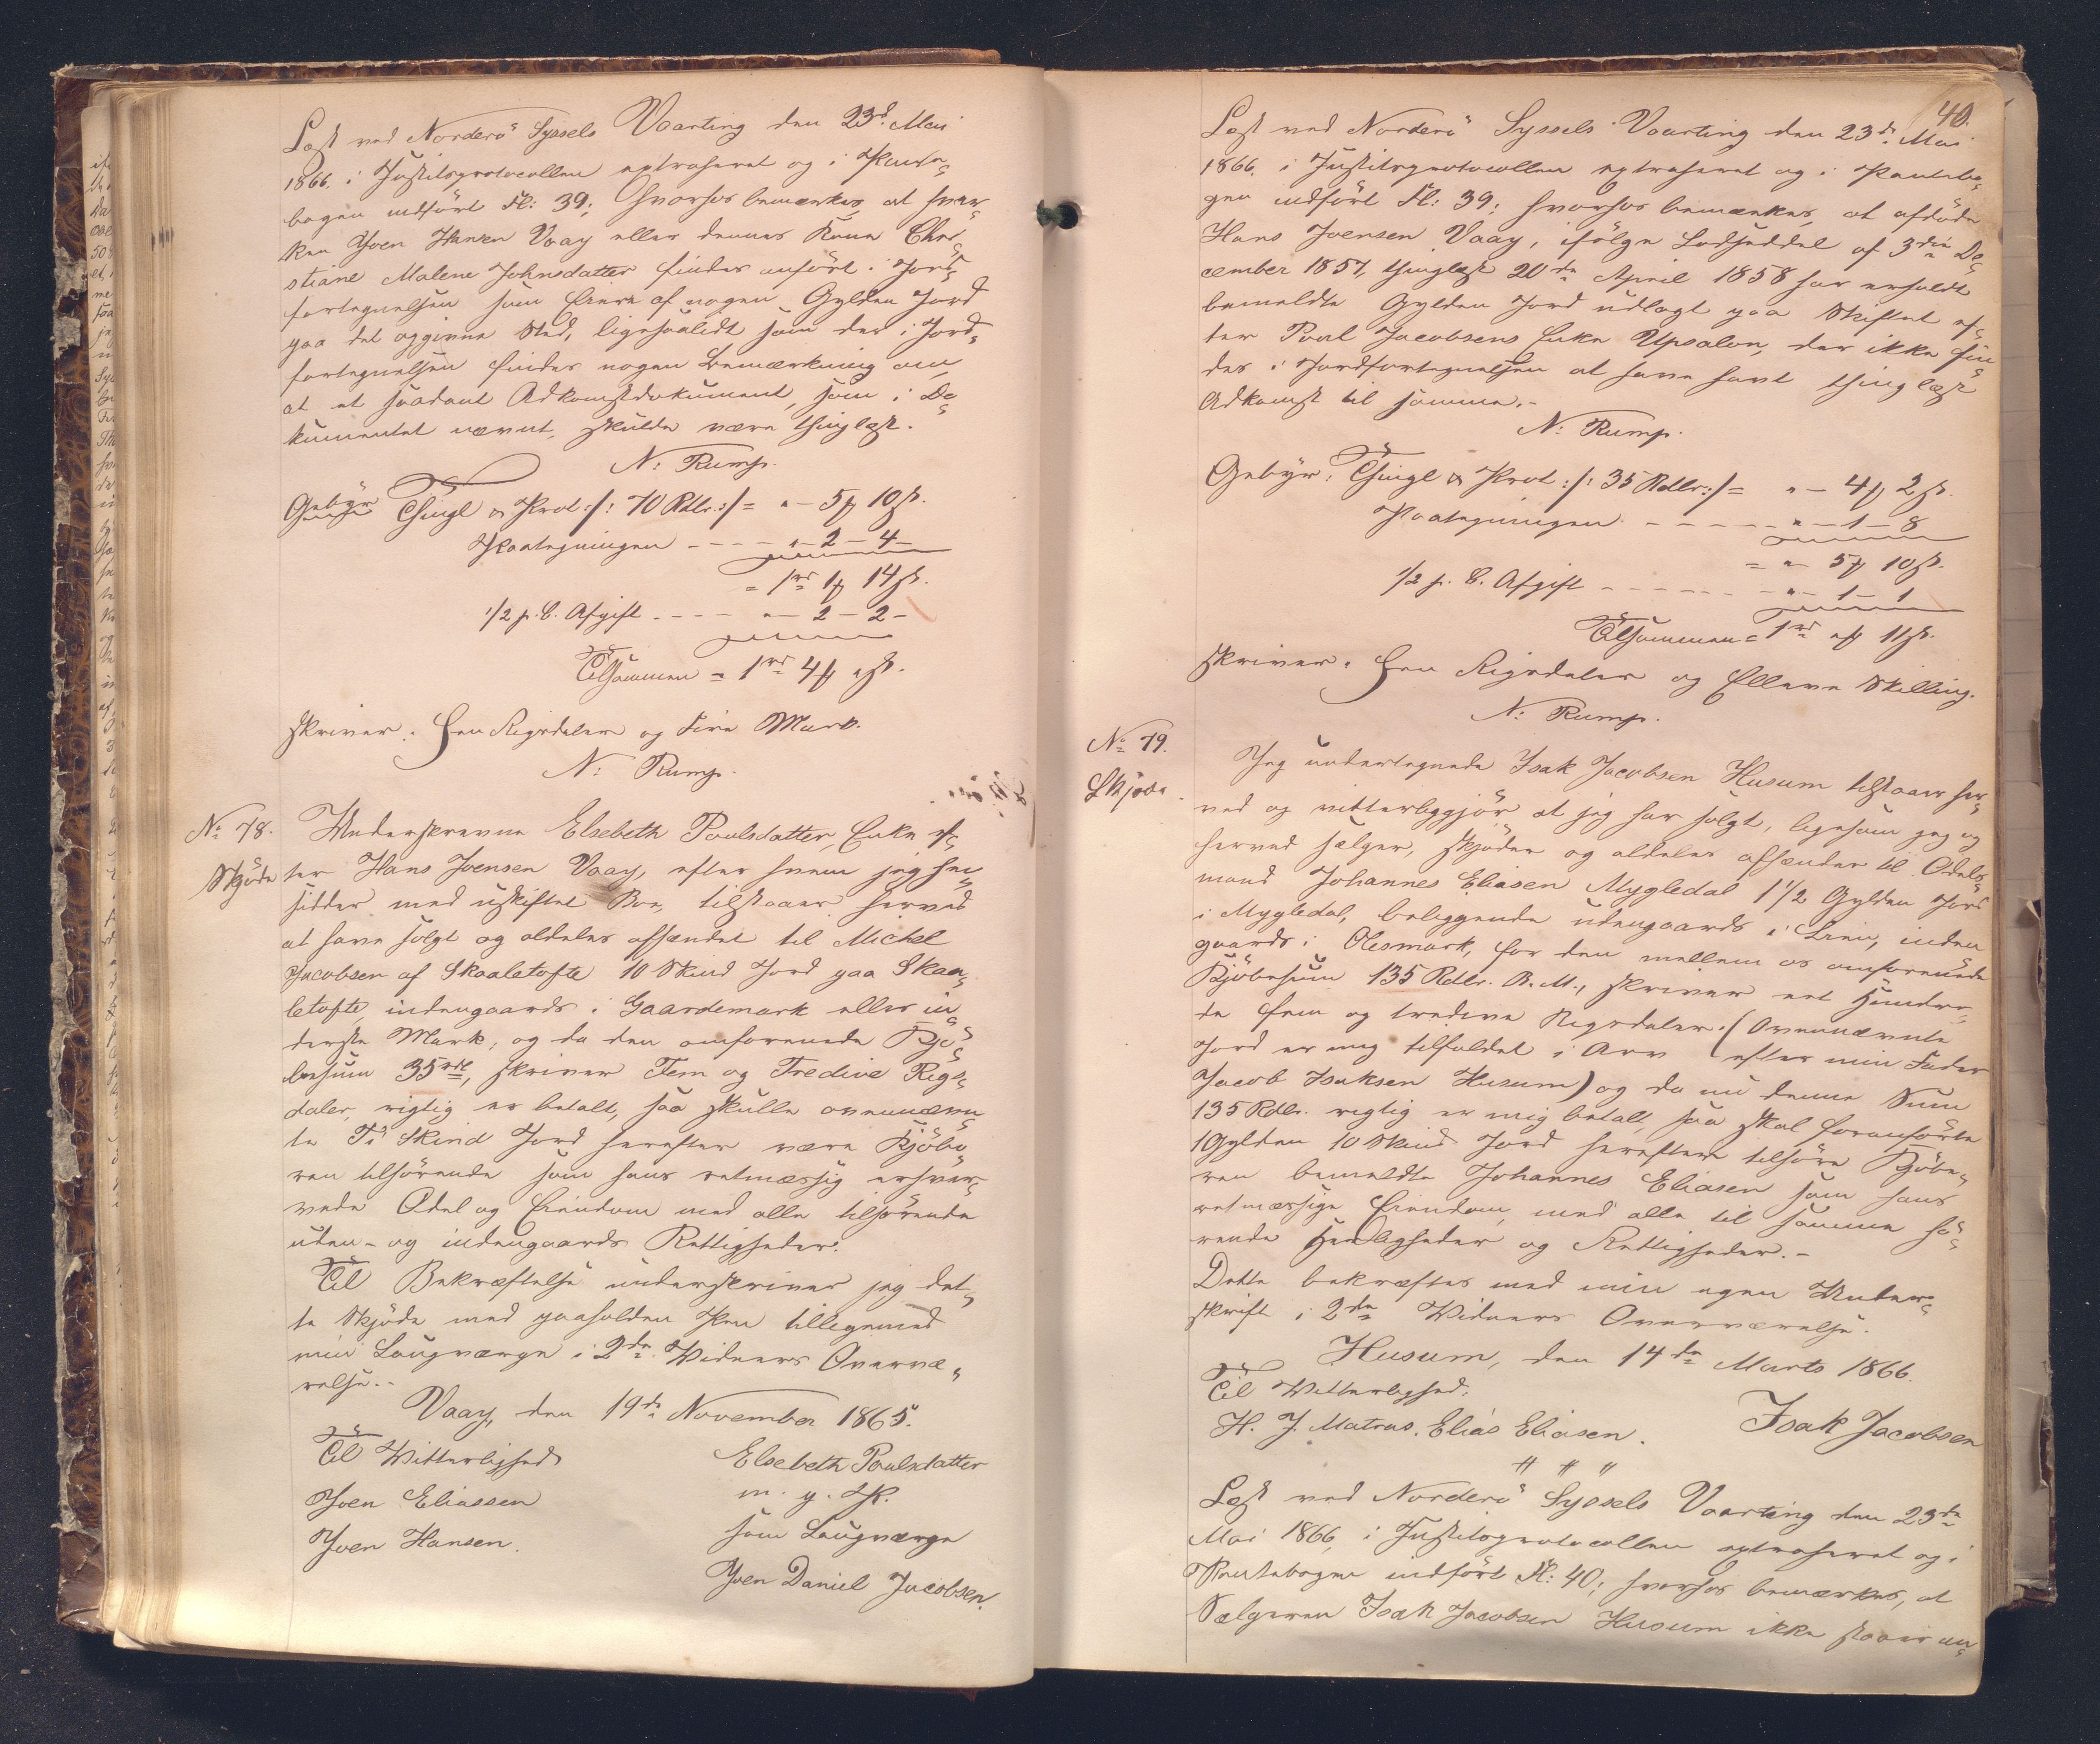 Læst ved Norderö Syssels Vaarting den 23d. Mai
1866. i Justitsprotocollen extraheret og i Pante-
bogen indført Fl: 39; hvorhos bemærkes, at hver-
ken Joen Hansen Vaay eller dennes Kone Chri-
stiane Malene Johnsdatter findes anført i Jord-
fortegnelsen som Eiere af nogen Gylden Jord
paa det opgivne Sted, ligesaalidt som der i Jord-
fortegnelsen findes nogen Bemærkning om,
at et saadant Adkomstdokument, som i Do-
kumentet nævnt, skulde være thinglæst.
N: Rump.
Gebyr Thingl & Prot :/: 70 Rdlr. :/ = " — 5 ꝟ 10 ſz.
Paategningen - - - - " — 2 — 4 —
= 1 rd 1 ꝟ 14 ſz.
1/2 p. C. Afgift - - - - " — 2 — 2 —
Tilsammen = 1 rd 4 ꝟ " ſz.
skriver: Een Rigsdaler og Fire Mark.
N: Rump.
No 78.
Skjöde
Underskrevne Elsebeth Poulsdatter, Enke ef-
ter Hans Joensen Vaay, efter hvem jeg hen-
sidder med uskiftet Boe, tilstaaer herved
at have solgt og aldeles afhændet til Michel
Jacobsen af Skaaletofte 10 Skind Jord paa Skaa-
letofte, indengaards i Gaardemark eller in-
derste Mark; og da den omforenede Kjö-
besum 35 rdl, skriver Fem og Tredive Rigs-
daler, rigtig er betalt, saa skulle ovennævn-
te Ti Skind Jord herefter være Kjöbe-
ren tilhörende som hans retmæssig erhver-
vede Odel og Eiendom med alle tilhörende
uden- og indengaards Rettigheder.
Til Bekræftelse underskriver jeg det-
te Skjöde med paaholden Pen tilligemed
min Laugværge i 2de Vidners Overvæ-
relse.-
Vaay, den 19de November 1865.
Til Vitterlighed
Elsebeth Poulsdatter
Joen Eliassen
m. p. P.
Joen Hansen.
som Laugværge
Joen Daniel Jacobsen.
40.
Læst ved Norderö Syssels Vaarting den 23de Mai
1866. i Justitsprotocollen extraheret og i Pantebo-
gen indført Fl: 39; hvorhos bemærkes, at afdöde
Hans Joensen Vaay, ifölge Lodseddel af 3die De-
cember 1857, thinglæst 20de April 1858 har erholdt
bemeldte Gylden Jord udlagt paa Skiftet ef-
ter Poul Jacobsens Enke Upsalon, der ikke fin-
des i Jordfortegnelsen at have havt thinglæst
Adkomst til samme.-
N: Rump.
Gebyr: Thingl & Prot :/: 35 Rdlr :/ = " — 4 ꝟ 2 ſz.
Paategningen - - - - - " — 1 — 8
= " — 5 ꝟ 10 ſz.
1/2 p. C. Afgift - - - - - - " — 1 — 1
Tilsammen = 1 rd " ꝟ 11 ſz.
skriver: Een Rigsdaler og Elleve Skilling.
N: Rump.
No 79.
Skjöde.
Jeg undertegnede Isak Jacobsen Husum tilstaaer her-
ved og vitterliggjör at jeg har solgt, ligesom jeg og
herved sælger, skjöder og aldeles afhænder til Odels-
mand Johannes Eliasen Mygledal 1 1/2 Gylden Jord
i Mygledal, beliggende udengaards i Lien, inden
gaards i Olesmark, for den mellem os omforenede
Kjöbesum 135 Rdlr. R. M., skriver eet Hundre-
de fem og tredive Rigsdaler. (Ovennævnte
Jord er mig tilfaldet i Arv efter min Fader
Jacob Isaksen Husum) og da nu denne Sum
135 Rdlr. rigtig er mig betalt, saa skal foranförte
1 Gylden 10 Skind Jord herefter tilhöre Kjöbe-
ren bemeldte Johannes Eliasen som hans
retmæssige Eiendom, med alle til samme hö-
rende Herligheder og Rettigheder.-
Dette bekræftes med min egen Under-
skrift i 2de Vidners Overværelse.
Husum, den 14de Marts 1866.
Til Vitterlighed:
H. J. Matras. Elias Eliasen.
Isak Jacobsen
Læst ved Norderö Syssels Vaarting den 23de
Mai 1866, i Justitsprotocollen extraheret og i
Pantebogen indført Fl: 40; hvorhos bemærkes, at
Sælgeren Isak Jacobsen Husum ikke staaer an-